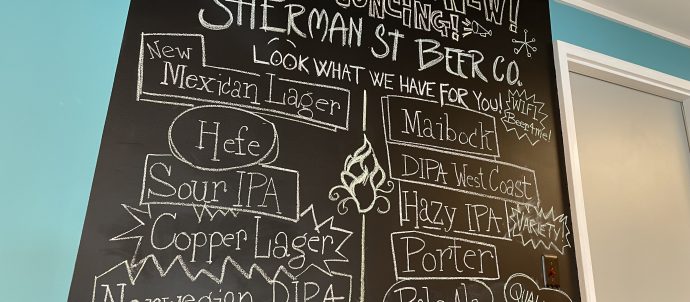 NEW!
SHERMAN ST BEER CO.
LOOK WHAT WE HAVE FOR YOU!
New
Mexican Lager
Hefe
Sour IPA
Copper Lager
Norwegian DIPA
WIFI
Maibock
DIPA West Coast
Hazy IPA
VARIETY!
Porter